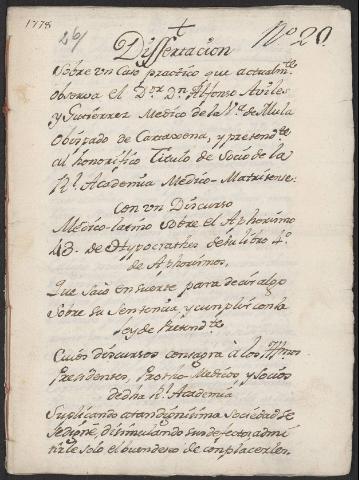 1778
26/
Nº 20.
Dissertacion
Sobre un Caso practico que actualm.te
observa el D.or D.n Alfonso Aviles
y Gutierrez Medico de la V.a de Mula
Obispado de Cartaxena, y pretend.te
al honorifico Titulo de Socio de la
R.l Academia Medico-Matritense:
Con un Discurso
Medico-latino sobre el Aphorismo
43. de Hypocrathes de su libro 4.º
de Aphorismos,
Que Saio en suerte para decir algo
Sobre su Sentencia, y cumplir con la
ley de Pretend.te
Cuios discursos consagra à los Ill.mos
Presidentes, Proto-Medicos y Socios
de dha R.l Academia
Suplicando a tan dignissima Sociedad se
de digne, disimulando sus defectos admi
tirle solo el buen deseo de complacerles.